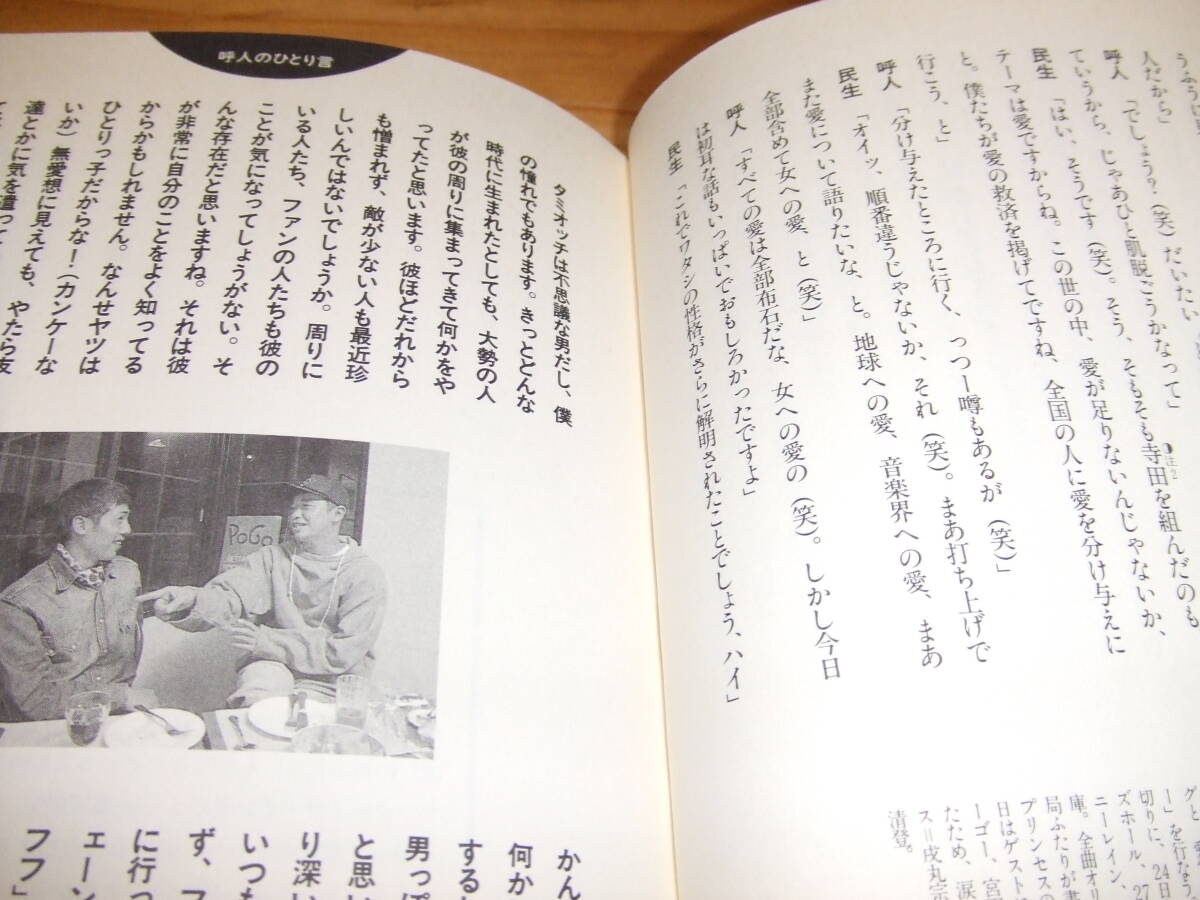 うふうに
人だから」
呼人 「でしょう?(笑) だいたい
ていうから、じゃあひと肌脱ごうかなって」
民生 「はい、そうです(笑)。そう、そもそも寺田を組んだのも
注2
テーマは愛ですからね。この世の中、愛が足りないんじゃないか、
と。僕たちが愛の救済を掲げてですね、全国の人に愛を分け与えに
行こう、と」
呼人 「分け与えたところに行く、つつー噂もあるが(笑)」
民生 「オイッ、順番違うじゃないか、それ(笑)。まあ打ち上げで
また愛について語りたいな、と。地球への愛、音楽界への愛、まあ
全部含めて女への愛、と(笑)」
呼人 「すべての愛は全部布石だな、女への愛の(笑)。しかし今日
は初耳な話もいっぱいでおもしろかったですよ」
民生 「これでワタシの性格がさらに解明されたことでしょう、ハイ」
グと
ー」を行なう
切りに、24日
ズホール、27
ニーレイン、
庫。全曲オリ
局ふたりが書
プリンセスの
日はゲストに
ーゴー、宮
たため、涙
ス=戌丸宗
清登。
呼人のひとり言
タミオッチは不思議な男だし、僕
の憧れでもあります。きっとどんな
時代に生まれたとしても、大勢の人
が彼の周りに集まってきて何かをや
ってたと思います。彼ほどだれから
も憎まれず、敵が少ない人も最近珍
しいんではないでしょうか。周りに
いる人たち、ファンの人たちも彼の
ことが気になってしょうがない。そ
んな存在だと思いますね。それは彼
が非常に自分のことをよく知ってる
からかもしれません。なんせヤツは
ひとりっ子だからな!(カンケーな
いか)無愛想に見えても、やたら友
達とかに気を遣って
PoGo
かん
何か
するし
男っぽ
と思い
り深い
いつも
ず、フ
に行っ
ェーン
フフ」